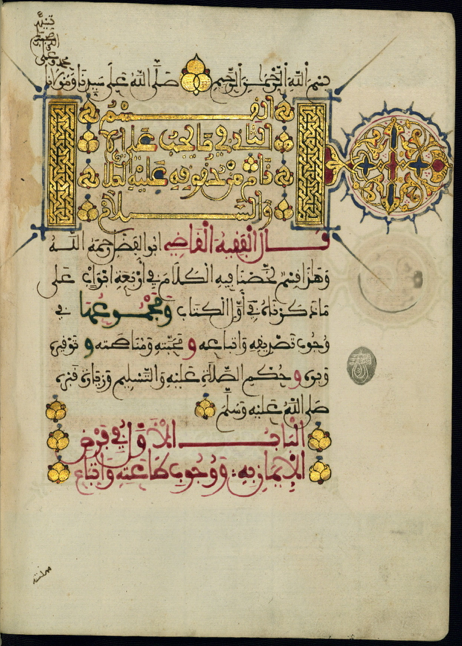 بسم الله الرحمن الرحيم صلى الله على سيدنا ومولانا
محمد وعلى
القسم
الثاني فيما يجب على الا
نام من حقوقه عليه الصلاة
والسلام
قال الفقيه القاضي ابو الفضل رحمه الله
وهذا قسم لخصنا فيه الكلام في اربعة ابواب على
ما ذكرناه في اول الكتاب ومجموعها في
وجوب تصديقه واتباعه ومحبته ومناصحته وتوقيره
وبره وحكم الصلاة عليه والتسليم وزيارة قبره
صلى الله عليه وسلم
الباب الاول في فرض
الايمان به ووجوب طاعته واتباع
سنته